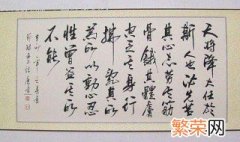 天将降大任於
斯人也必先苦
其心志劳其筋
骨饿其體膚
空乏其身行
拂亂其所
為所以動心忍
性曾益其所
不能
繁荣网